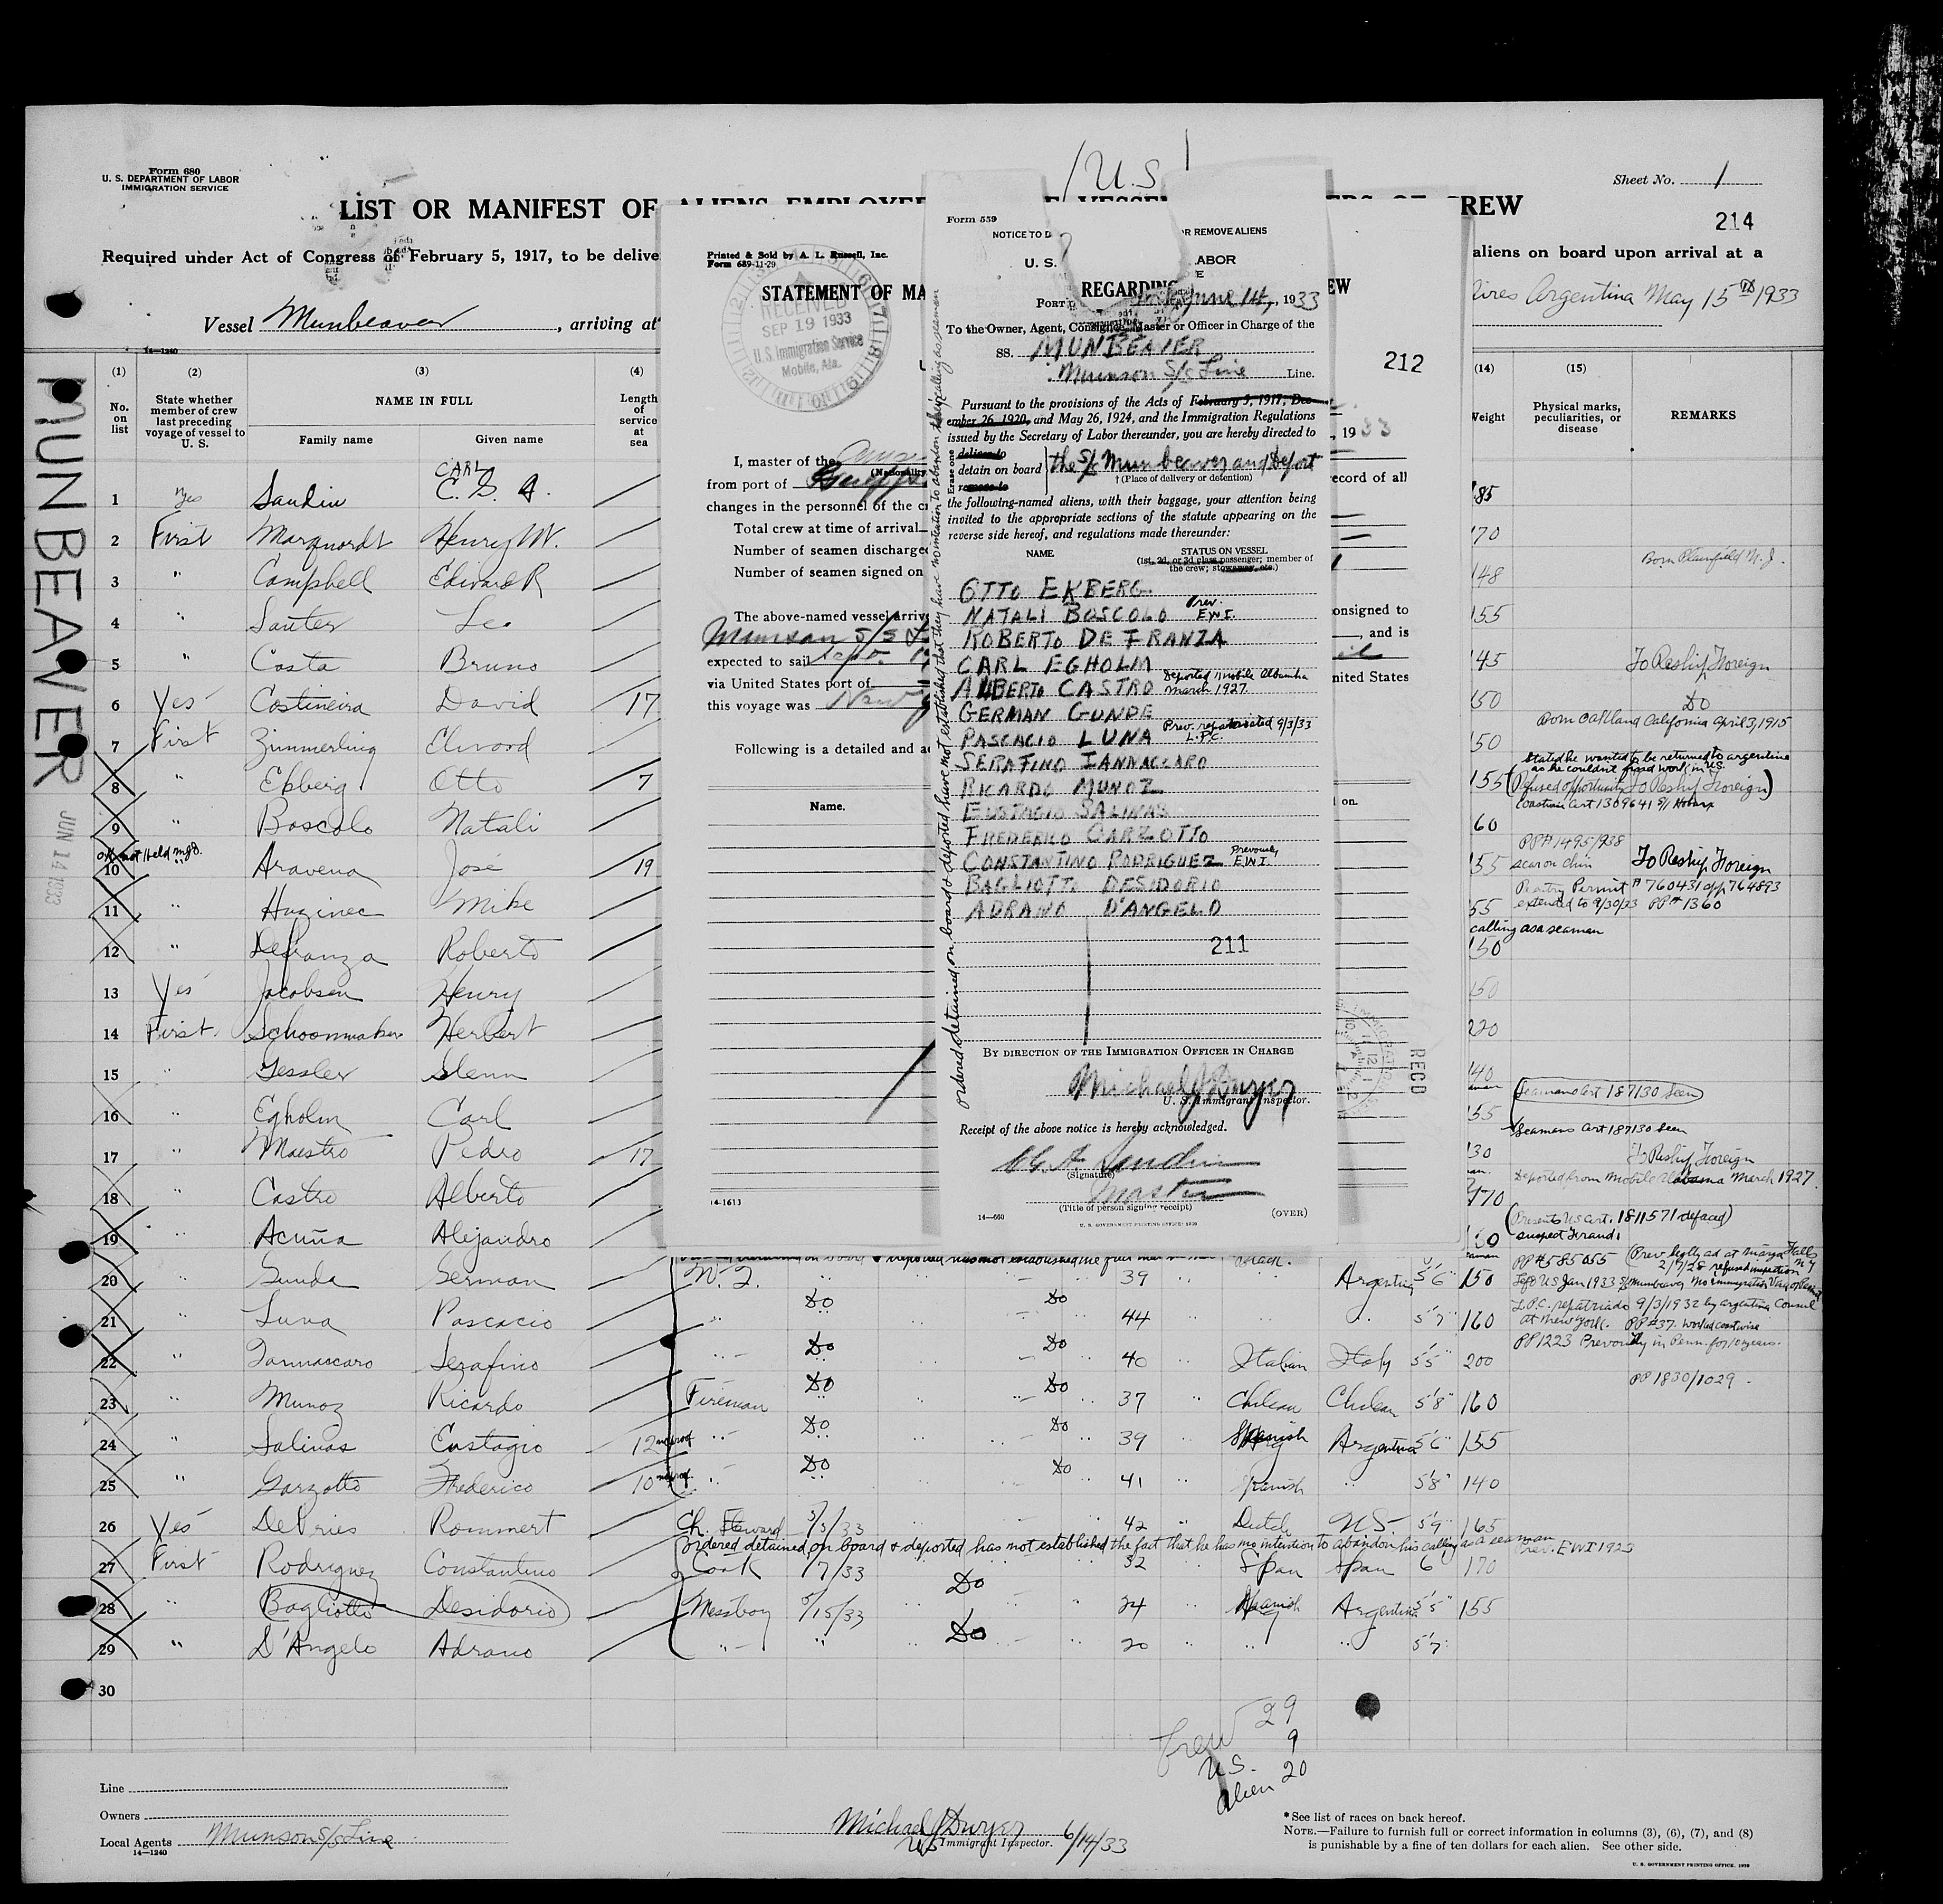 Form 680
U. S. DEPARTMENT OF LABOR
IMMIGRATION SERVICE
Sheet No. 1
214
LIST OR MANIFEST OF ALIENS EMPLOYED
VESSEL
CREW
Required under Act of Congress of February 5, 1917, to be delive
aliens on board upon arrival at a
Vessel Munbeaver, arriving at
Aires Argentina May 15th 1933
14—1240
MUNBEAVER
JUN 14 1933
(1) (2) (3) (4)
No. on list
State whether member of crew last preceding voyage of vessel to U. S.
NAME IN FULL
Family name Given name
Length of service at sea
(14) (15)
Weight
Physical marks, peculiarities, or disease
REMARKS
CARL
1 Yes Sandin C. G. A. 85
2 First Marquordt Henry W. 170
3 " Campbell Edward R 148 Born Plainfield N.J.
4 " Sauter Leo 155
5 " Costa Bruno 145 To Reship Foreign
6 Yes Costineira David 17 150 Do
7 First Zimmerling Elwood 150 Born Oakland California April 3, 1915
Stated he wanted to be returned to argentina
as he couldn't find work in U.S.
8 " Ekberg Otto 7 155 (Refused opportunity To Reship Foreign)
9 " Boscolo Natali 60
PP# 1495/938
10 " Aravena José 19 155 scar on chin To Reship Foreign
Reentry Permit # 760431 app 764893
11 " Huzinec Mike 55 extended to 9/30/33 PP# 1360
calling as a seaman
12 " Defranza Roberto 150
13 Yes Jacobsen Henry 150
14 First Schoonmaker Herbert 220
15 " Gessler Glenn 140
Seamans Cert 187130 seen
16 " Egholm Carl 155
Seamens Cert 187130 seen
17 " Maestro Pedro 17 130 To Reship Foreign
Deported from Mobile Alabama March 1927
18 " Castro Alberto 170
(Presents US Cert. 1811571 defaced)
19 " Acuña Alejandro suspect Fraud
PP# 585055
20 " Gunda German W. T. 39 Argentina 5'6" 150
21 " Luna Pascacio Do Do 44 5'7" 160
L.P.C. repatriado 9/3/1932 by argentina Consul
at New York. PP #37. Worked coastwise
PP 1223 Prevously in Penn. for 10 years.
22 " Iannaccaro Serafino Do Do 40 Italian Italy 5'5" 200
PP 1830/1029
23 " Munoz Ricardo Fireman Do Do 37 Chilean Chilean 5'8" 160
24 " Salinas Eustagio 12 Do Do 39 Spanish Argentina 5'6" 155
25 " Garzotto Frederico 10 Do Do 41 Spanish " 5'8" 140
26 Yes DeVries Rommert Ch. Steward 5/3/33 42 Dutch U.S. 5'9" 165
Ordered detained on board & deported has not established the fact that he has no intention to abandon his calling as a seaman
Prev. EWI 1923
27 First Rodriguez Constantino Cook 32 Span Span 6' 170
28 " Bagliotto Desidorio Messboy 5/15/33 Do 24 Spanish Argentina 5'5" 155
29 " D'Angelo Adrano " Do 20 " " 5'7"
30
Crew 29
9
U.S.
alien 20
Line
Owners
Local Agents Munson S/S Line
14—1240
Michael J Dwyer
US Immigrant Inspector. 6/14/33
* See list of races on back hereof.
NOTE.—Failure to furnish full or correct information in columns (3), (6), (7), and (8)
is punishable by a fine of ten dollars for each alien. See other side.
U. S. GOVERNMENT PRINTING OFFICE
Printed & Sold by A. L. Russell, Inc.
Form 689-11-29
STATEMENT OF MA
RECEIVED
SEP 19 1933
U. S. Immigration Service
Mobile, Ala.
212
, 1933
I, master of the
(Nationality
from port of
ecord of all
changes in the personnel of the cr
Total crew at time of arrival
Number of seamen discharged
Number of seamen signed on
The above-named vessel arrive
onsigned to
Munson S/S
, and is
expected to sail Sept.
via United States port of
nited States
this voyage was
Following is a detailed and a
Name.
on.
RECD
14-1613
/ U.S /
Form 559
NOTICE TO D
OR REMOVE ALIENS
U. S.
LABOR
REGARDING
PORT
June 14, 1933
To the Owner, Agent, Consignee, Master or Officer in Charge of the
SS. MUNBEAVER
Munson S/S Line Line.
Pursuant to the provisions of the Acts of February 5, 1917, Dec-
ember 26, 1920, and May 26, 1924, and the Immigration Regulations
issued by the Secretary of Labor thereunder, you are hereby directed to
Erase one
deliver to
detain on board
remove to
the S/S Munbeaver and Deport
† (Place of delivery or detention)
the following-named aliens, with their baggage, your attention being
invited to the appropriate sections of the statute appearing on the
reverse side hereof, and regulations made thereunder:
NAME
STATUS ON VESSEL
(1st, 2d, or 3d class passenger; member of
the crew; stowaway, etc.)
OTTO EKBERG
NATALI BOSCOLO Prev. E.W.I.
ROBERTO DE FRANZA
CARL EGHOLM
ALBERTO CASTRO Deported Mobile Albamha March 1927.
GERMAN GUNDE
PASCACIO LUNA Prev. repatriated 9/3/33 L.P.C.
SERAFINO IANNACCARO
RICARDO MUNOZ
EUSTAGIO SALINAS
FREDERICO GARZOTTO
CONSTANTINO RODRIGUEZ Prevously E.W.I.
BAGLIOTTI DESIDORIO
ADRANO D'ANGELO
211
ordered detained on board & deported have not established that they have no intention to abandon their calling as seaman
BY DIRECTION OF THE IMMIGRATION OFFICER IN CHARGE
Michael J Dwyer
U. S. Immigrant Inspector.
Receipt of the above notice is hereby acknowledged.
C G A. Sandin
(Signature)
Master
(Title of person signing receipt)
14—660
(OVER)